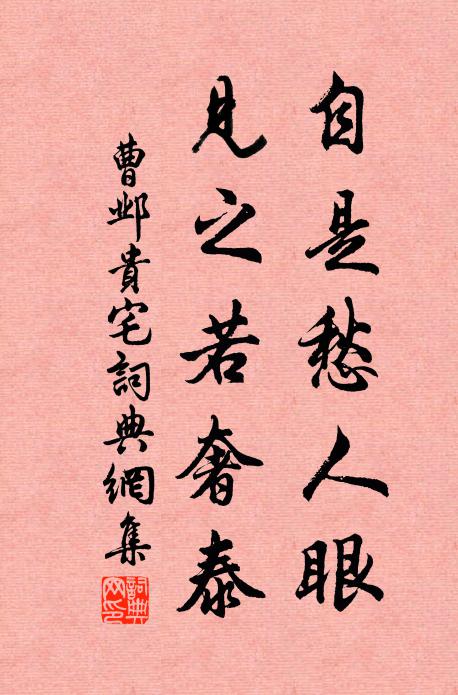 自是愁人眼
見之若奢泰
曹邺貴宅詞典網集
詞典网印